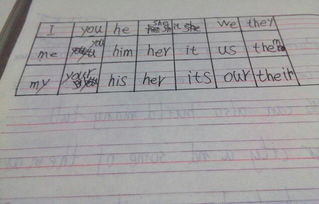 I you he she it we they
me you him her it us them
my your his her its our their